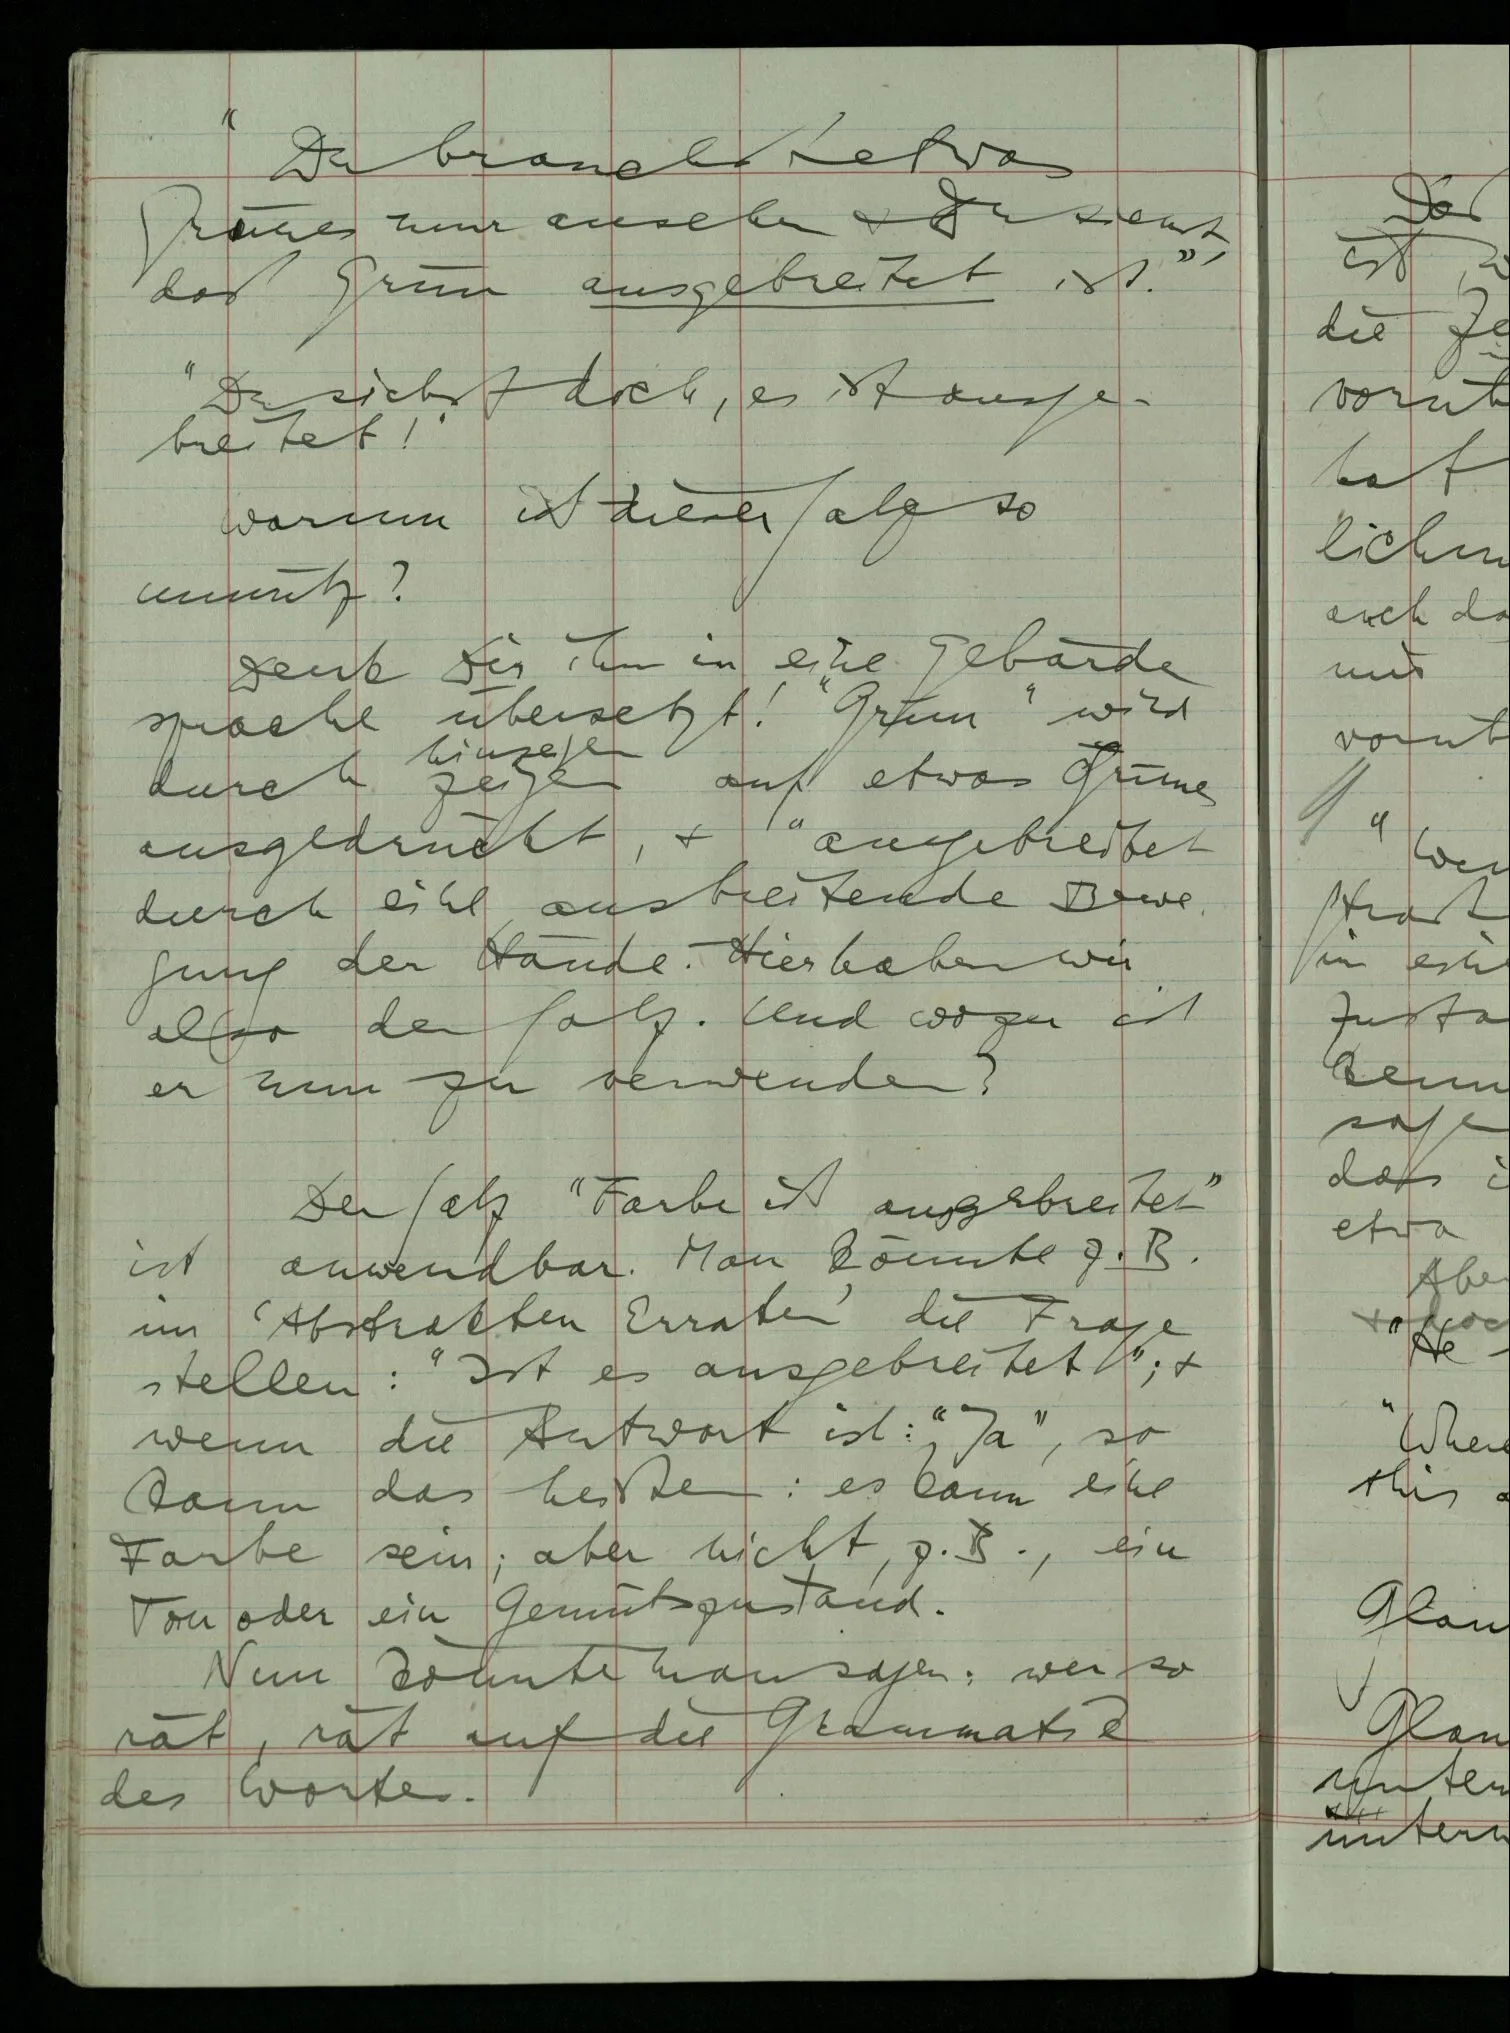 " Du brauchst etwas
Grünes nur ansehen & Du siehst,
daß Grün ausgebreitet ist."
"Du siehst doch, es ist ausge-
breitet!"
Warum ist dieser Satz so
unnütz?
Denk Dir ihn in eine Gebärde
sprache übersetzt! "Grün" wird
hinzeigen
durch zeigen auf etwas Grünes
ausgedrückt, & "ausgebreitet
durch eine ausbreitende Bewe
gung der Hände. Hier haben wir
also den Satz. Und wozu ist
er nun zu verwenden?
Der Satz "Farbe ist ausgebreitet"
ist anwendbar. Man könnte z.B.
im 'Abstrakten Erraten' die Frage
stellen: "Ist es ausgebreitet"; &
wenn die Antwort ist: "Ja", so
kann das heißen: es kann eine
Farbe sein; aber nicht, z.B., ein
Ton oder ein Gemütszustand.
Nun könnte man sagen: wer so
rät, rät auf die Grammatik
des Wortes.
ist,
die
hat
auch
"He
"Where
this